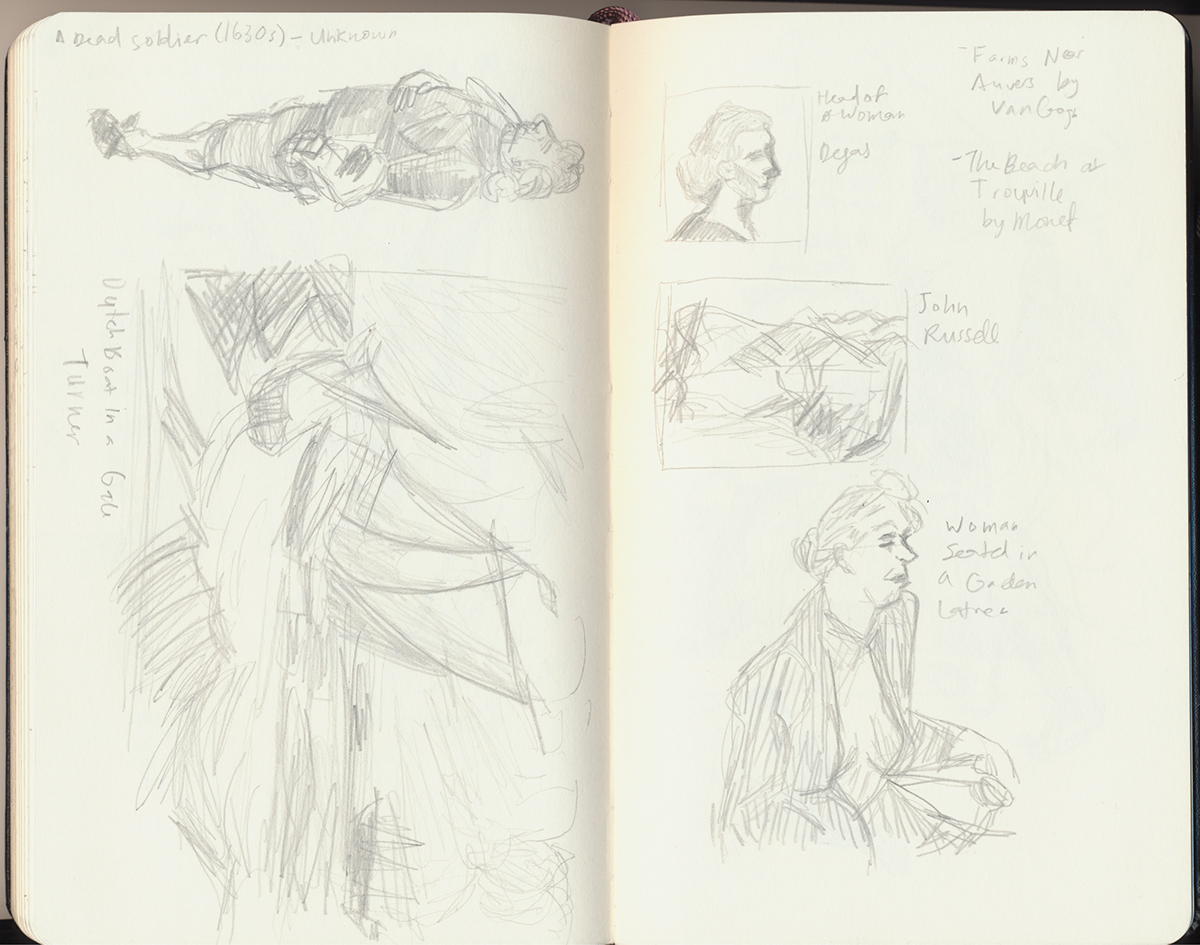 A Dead Soldier (1630s) - Unknown
Dutch Boat in a Gale
Turner
Head of
a Woman
Degas
- Farms Near
Auvers by
Van Gogh
- The Beach at
Trouville
by Monet
John
Russell
Woman
Seated in
a Garden